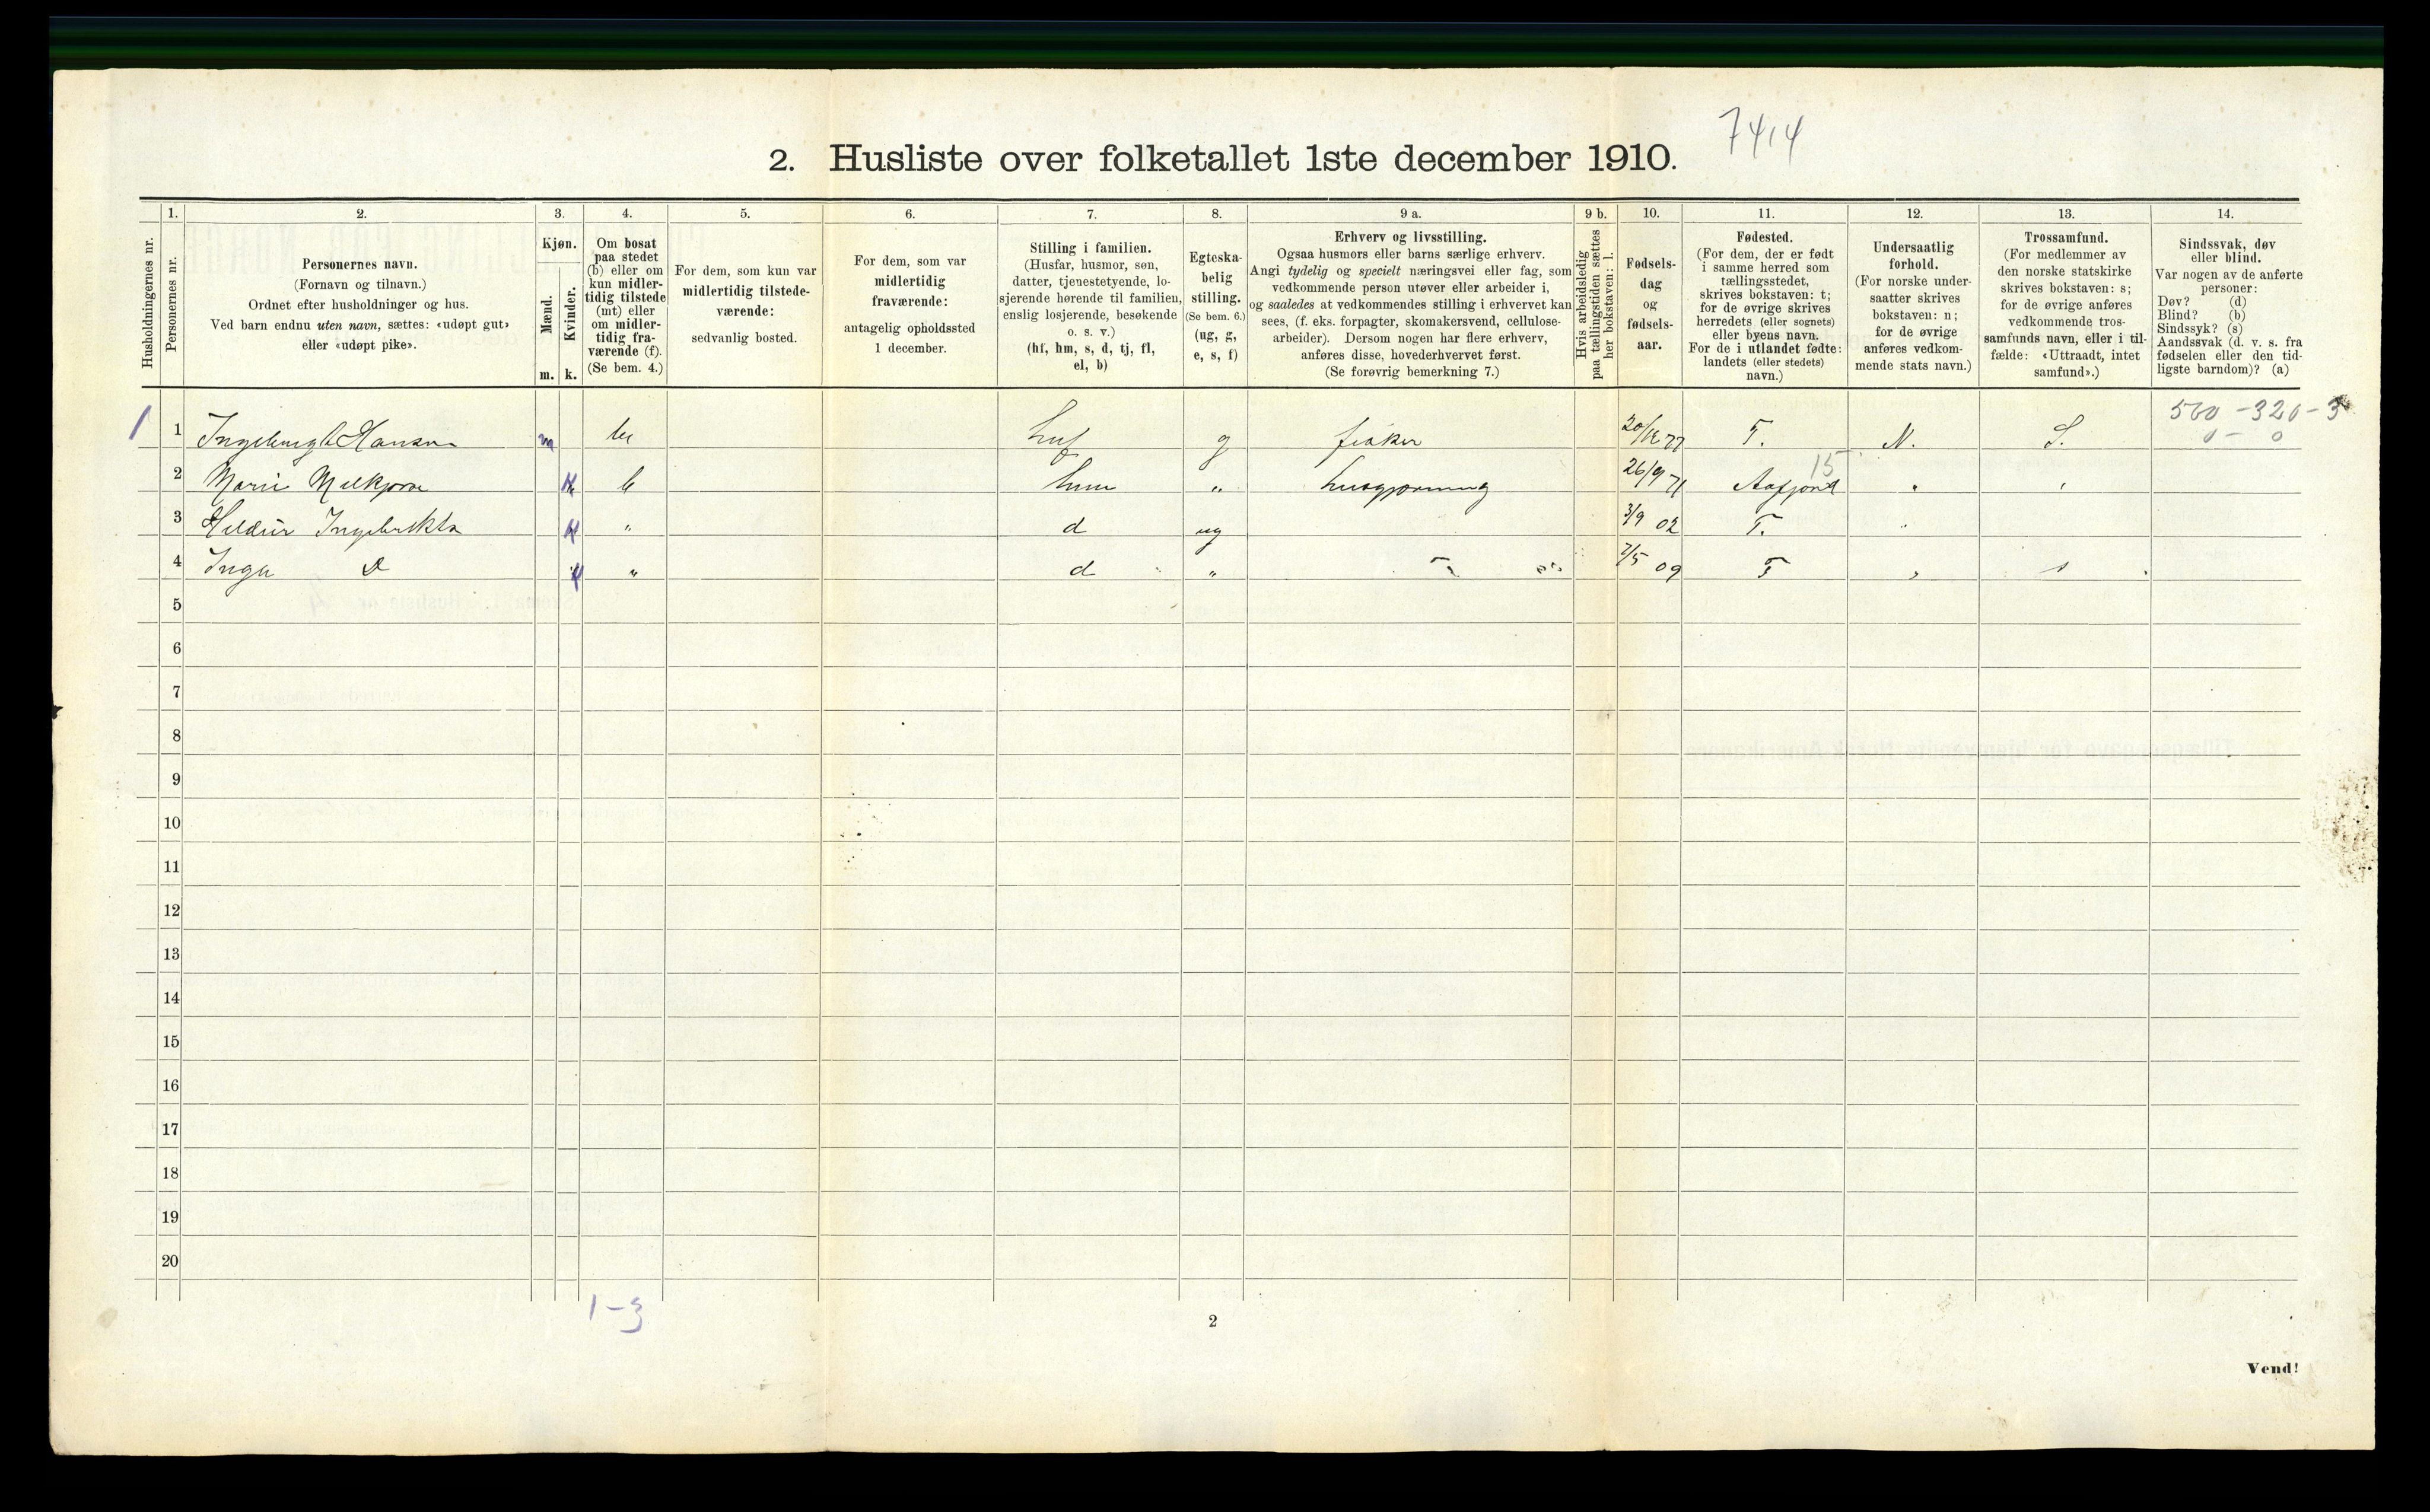 7414
2. Husliste over folketallet 1ste december 1910.
Husholdningernes nr.
1.
Personernes nr.
2.
Personernes navn.
(Fornavn og tilnavn.)
Ordnet efter husholdninger og hus.
Ved barn endnu uten navn, sættes: «udøpt gut»
eller «udøpt pike».
3.
Kjøn.
Mænd.
Kvinder.
m. k.
4.
Om bosat
paa stedet
(b) eller om
kun midler-
tidig tilstede
(mt) eller
om midler-
tidig fra-
værende (f).
(Se bem. 4.)
5.
For dem, som kun var
midlertidig tilstede-
værende:
sedvanlig bosted.
6.
For dem, som var
midlertidig
fraværende:
antagelig opholdssted
1 december.
7.
Stilling i familien.
(Husfar, husmor, søn,
datter, tjenestetyende, lo-
sjerende hørende til familien,
enslig losjerende, besøkende
o. s. v.)
(hf, hm, s, d, tj, fl,
el, b)
8.
Egteska-
belig
stilling.
(Se bem. 6.)
(ug, g,
e, s, f)
9 a.
Erhverv og livsstilling.
Ogsaa husmors eller barns særlige erhverv.
Angi tydelig og specielt næringsvei eller fag, som
vedkommende person utøver eller arbeider i,
og saaledes at vedkommendes stilling i erhvervet kan
sees, (f. eks. forpagter, skomakersvend, cellulose-
arbeider). Dersom nogen har flere erhverv,
anføres disse, hovederhvervet først.
(Se forøvrig bemerkning 7.)
9 b.
Hvis arbeidsledig
paa tællingstiden sættes
her bokstaven: l.
10.
Fødsels-
dag
og
fødsels-
aar.
11.
Fødested.
(For dem, der er født
i samme herred som
tællingsstedet,
skrives bokstaven: t;
for de øvrige skrives
herredets (eller sognets)
eller byens navn.
For de i utlandet fødte:
landets (eller stedets)
navn.)
12.
Undersaatlig
forhold.
(For norske under-
saatter skrives
bokstaven: n;
for de øvrige
anføres vedkom-
mende stats navn.)
13.
Trossamfund.
(For medlemmer av
den norske statskirke
skrives bokstaven: s;
for de øvrige anføres
vedkommende tros-
samfunds navn, eller i til-
fælde: «Uttraadt, intet
samfund».)
14.
Sindssvak, døv
eller blind.
Var nogen av de anførte
personer:
Døv? (d)
Blind? (b)
Sindssyk? (s)
Aandssvak (d. v. s. fra
fødselen eller den tid-
ligste barndom)? (a)
500 - 320 - 3
0 - 0
1 1 m g fisker T. N. S.
15
2 Marie k b hm " husgjerning 26/9 71 Aafjord "
3 k " d ug 3/9 02 T. "
4 Inga k " d " 7/5 09 T "
5
6
7
8
9
10
11
12
13
14
15
16
17
18
19
20
1-3
2
Vend!